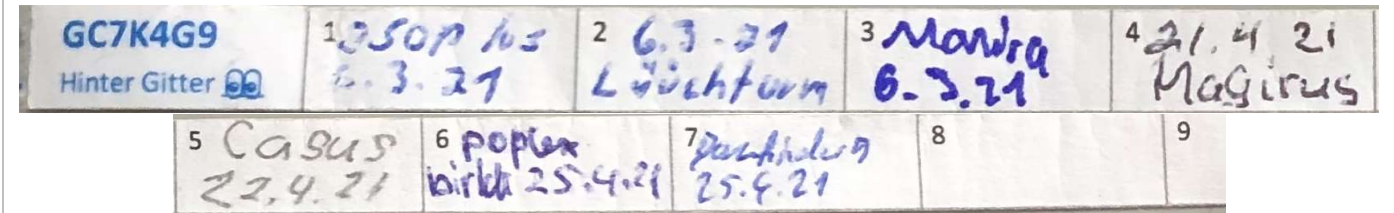 GC7K4G9
Hinter Gitter
1
6.3.21
2 6.3.21
Lüüchturm
3
6.3.21
4 21.4 21
Magirus
5 Casus
22.4.21
6 poplex
25.4.21
7
25.4.21
8
9